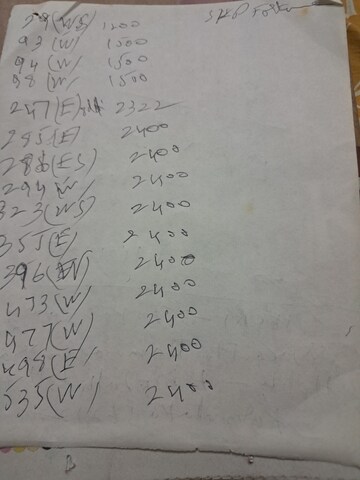 29(WS) 1200
93(W) 1500
94(W) 1500
98(W) 1500
247(E) 2322
285(E) 2400
288(ES) 2400
294 W/ 2400
323(WS) 2400
355(E) 2400
396(EV) 2400
473(W) 2400
477(W) 2400
498(E/ 2400
535(W) 2400